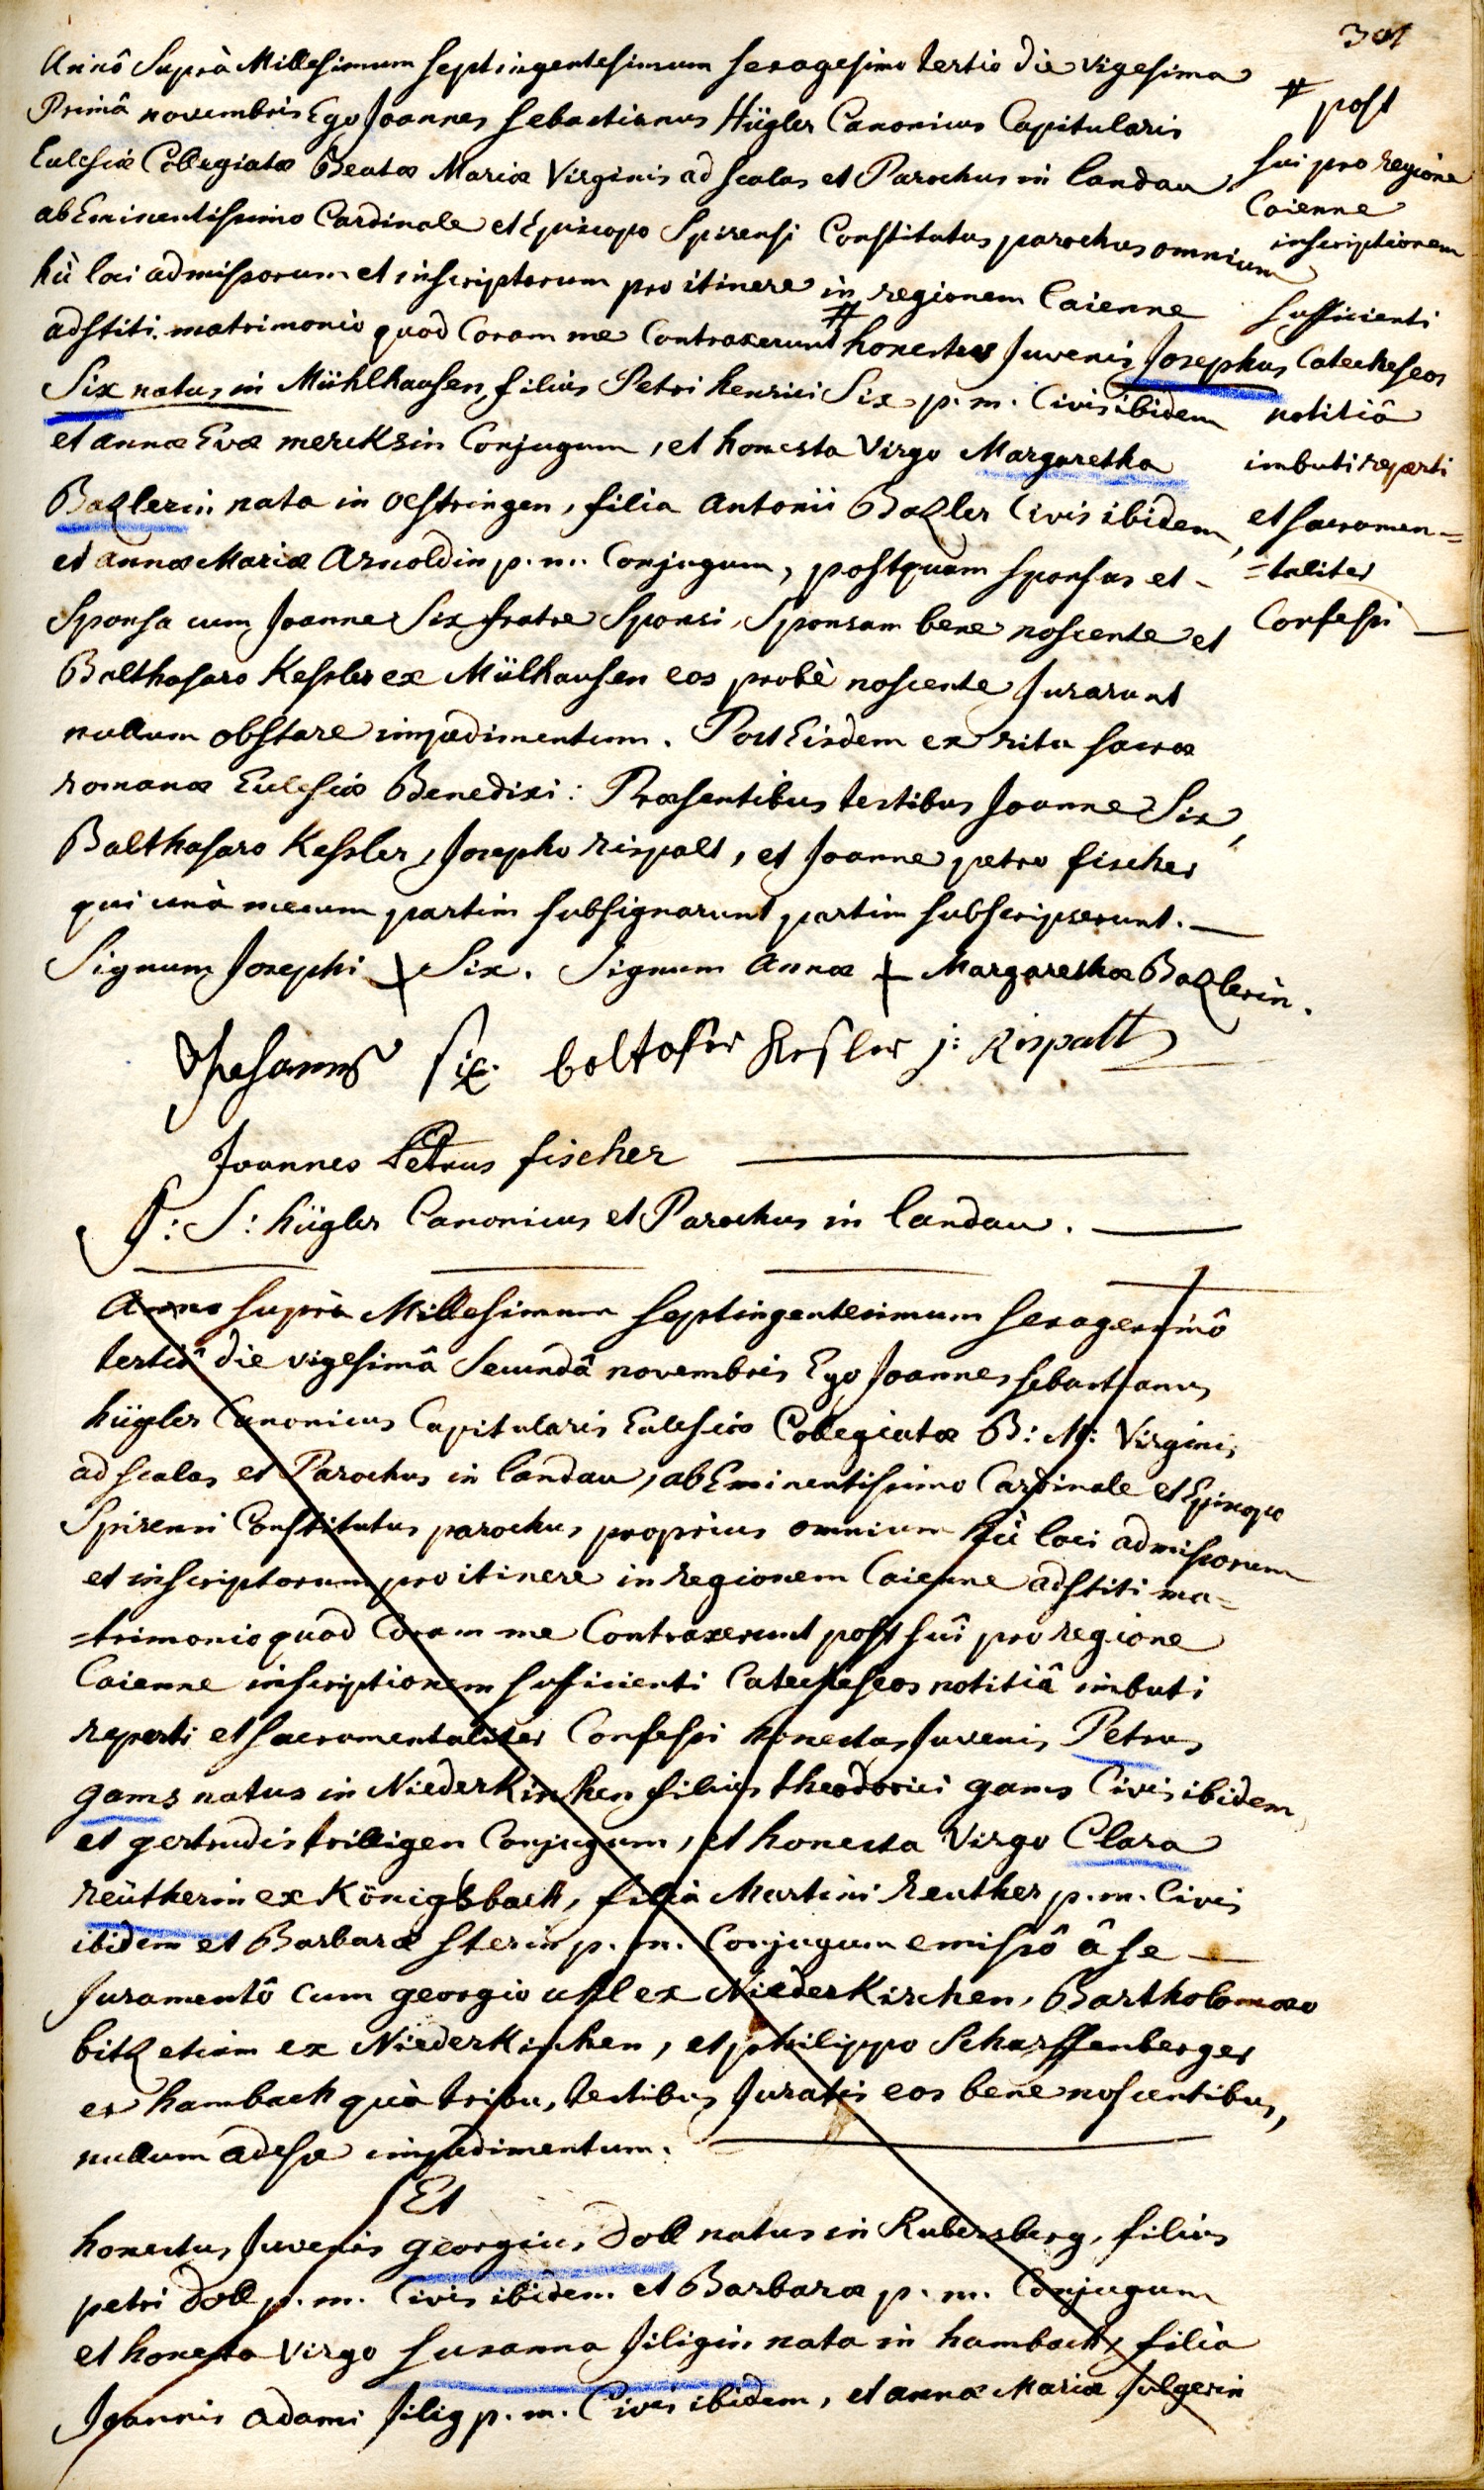 301
Annô Suprà Millesimum septingentesimum sexagesimo tertio die vigesima
Primâ novembris Ego Joannes Sebastianus Hügler Canonicus Capitularis
Eclesiæ Collegiatæ Beatæ Mariæ Virginis ad scalas et Parochus in landau
ab Eminentissimo Cardinale et Episcopo Spirensi Constitutus parochus omnium
hù loci admissorum et inscriptorum pro itinere in regionem Caienne
adstiti matrimonio quod Coram me Contraxerunt # honestus Juvenis Josephus
Six natus in Mühlhausen, filius Petri henrici Six p. m. Civis ibidem
et annæ Evæ mercksin Conjugum, et honesta Virgo Margaretha
Bazlerin nata in Oestringen, filia Antonii Bazler Civis ibidem,
et annæ Mariæ Arnoldin p. m. Conjugum, postquam sponsus et
Sponsa cum Joanne Six fratre Sponsi, Sponsam bene noscente et
Balthasaro Kessler ex Mülhausen eos probè noscente Jurarunt
nullum obstare impedimentum. Post Eisdem ex ritu sacræ
romanæ Eclesiæ Benedixi: Præsentibus testibus Joanne Six,
Balthasaro Kessler, Josepho rispalt, et Joanne petro fischer
qui unà mecum partim subsignarunt partim subscripserunt.
Signum Josephi + Six. Signum Annæ + Margarethæ Bazlerin.
# post
sui pro regione
Caienne
inscriptionem
sufficienti
Catecheseos
notitiâ
imbuti reperti
et sacramen=
=taliter
Confessi
Johannes six. baltaser Kesler j: Rispalt
Joannes Petrus fischer
J: S: hügler Canonicus et Parochus in landau.
Anno suprà Millesimum septingentesimum sexagesimô
tertiô die vigesimâ Secundâ novembris Ego Joannes sebastianus
hügler Canonicus Capitularis Eclesiæ Collegiatæ B: M: Virginis
ad scalas et Parochus in landau, ab Eminentissimo Cardinale et Episcopo
Spirensi Constitutus parochus proprius omnium hù loci admissorum
et inscriptorum pro itinere in regionem Caienne adstiti ma=
=trimonio quod Coram me Contraxerunt post sui pro regione
Caienne inscriptionem sufficienti Catecheseos notitiâ imbuti
reperti et sacramentaliter Confessi honestus Juvenis Petrus
gams natus in Niederkirchen filius theodorici gams Civis ibidem,
et gertrudis trilligen Conjugum, et honesta Virgo Clara
reütherin ex Königsbach, filia Martini reuther p. m. Civis
ibidem et Barbaræ sterin p. m. Conjugum emissô â se
Juramentô cum georgio ex Niederkirchen, Bartholomæo
bitz etiam ex Niederkirchen, et philippo Scharffenberger
ex hambach quà tribus testibus Juratis eos bene noscentibus,
nullum adesse impedimentum.
Et
honestus Juvenis georgius Doll natus in Rubersberg, filius
petri Doll p. m. Civis ibidem et Barbaræ p. m. Conjugum
et honesta Virgo susanna Jiligin nata in hambach, filia
Joannis adami Jilig p. m. Civis ibidem, et annæ Mariæ Julgerin